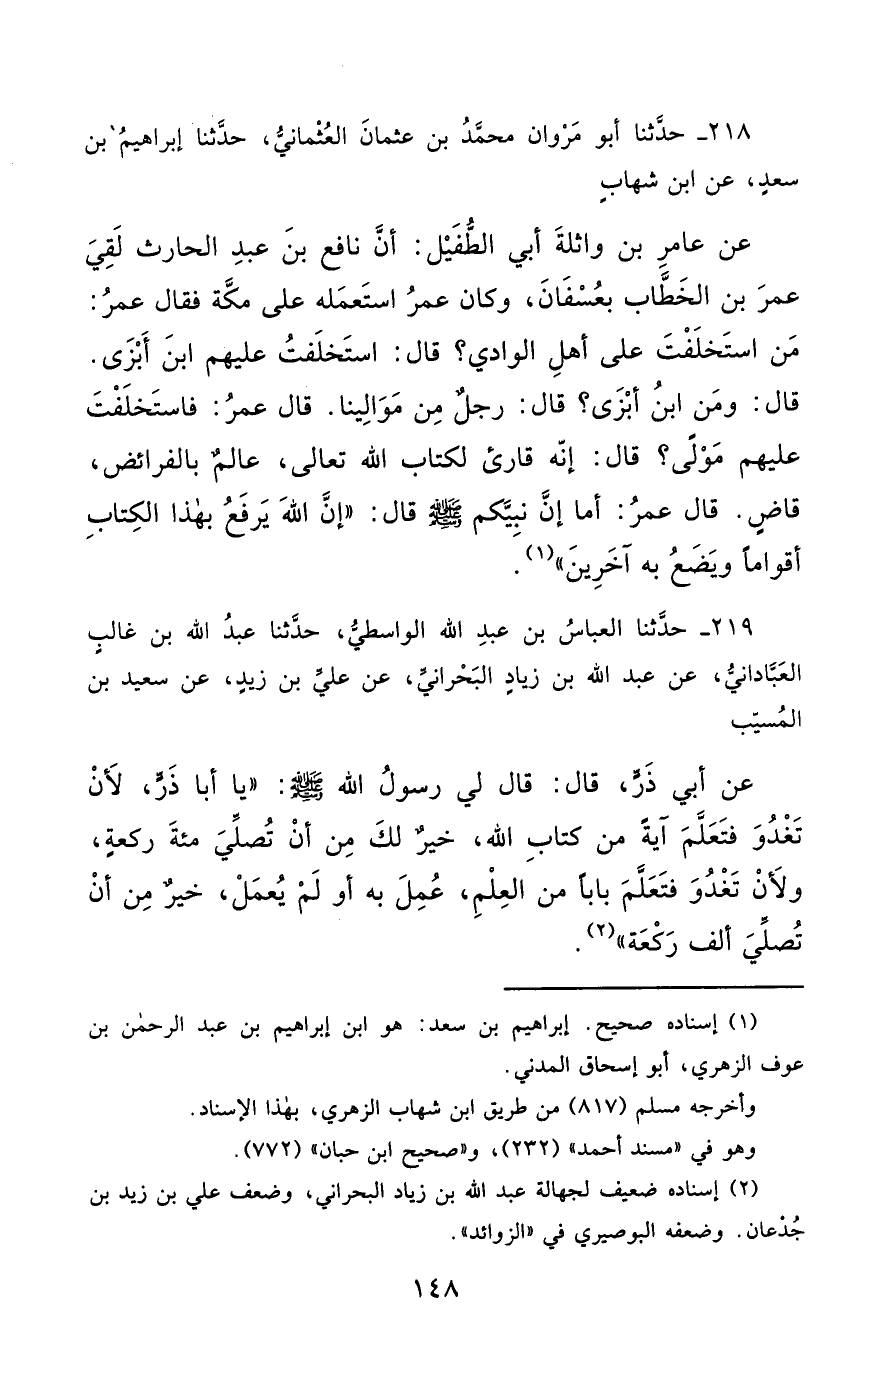 ٢١٨ـ حدَّثنا أبو مَرْوان محمَّدُ بن عثمانَ العُثْمانيُّ، حدَّثنا إبراهيمُ بن
سعدٍ، عن ابن شهابٍ
عن عامرِ بن واثلةَ أبي الطُّفَيْل: أنَّ نافع بنَ عبدِ الحارث لَقِيَ
عمرَ بن الخَطَّاب بعُسْفَانَ، وكان عمرُ استَعمَله على مكَّة فقال عمرُ:
مَن استَخلَفْتَ على أهلِ الوادي؟ قال: استَخلَفتُ عليهم ابنَ أَبْزَى.
قال: ومَن ابنُ أبْزَى؟ قال: رجلٌ مِن مَوَالِينا. قال عمرُ: فاستَخلَفْتَ
عليهم مَوْلًى؟ قال: إنّه قارئ لكتاب الله تعالى، عالمٌ بالفرائض،
قاضٍ. قال عمرُ: أما إنَّ نبِيَّكم ﷺ قال: «إنَّ اللهَ يَرفَعُ بهٰذا الكِتابِ
أقواماً ويَضَعُ به آخَرِينَ»(١).
٢١٩ـ حدَّثنا العباسُ بن عبدِ الله الواسطيُّ، حدَّثنا عبدُ الله بن غالبٍ
العَبَّادانيُّ، عن عبد الله بن زيادٍ البَحْرانيِّ، عن عليِّ بن زيدٍ، عن سعيد بن
المُسيّب
عن أبي ذَرٍّ، قال: قال لي رسولُ الله ﷺ: «يا أبا ذَرٍّ، لَأنْ
تَغْدُوَ فتَعَلَّمَ آيةً من كتابِ الله، خيرٌ لكَ مِن أنْ تُصلِّيَ مئةَ ركعةٍ،
ولَأنْ تَغْدُوَ فتَعَلَّمَ باباً من العِلْمِ، عُمِلَ به أو لَمْ يُعمَلْ، خيرٌ مِن أنْ
تُصلِّيَ ألف رَكْعَة»(٢).
(١) إسناده صحيح. إبراهيم بن سعد: هو ابن إبراهيم بن عبد الرحمٰن بن
عوف الزهري، أبو إسحاق المدني.
وأخرجه مسلم (٨١٧) من طريق ابن شهاب الزهري، بهٰذا الإسناد.
وهو في «مسند أحمد» (٢٣٢)، و«صحيح ابن حبان» (٧٧٢).
(٢) إسناده ضعيف لجهالة عبد الله بن زياد البحراني، وضعف علي بن زيد بن
جُدْعان. وضعفه البوصيري في «الزوائد».
١٤٨